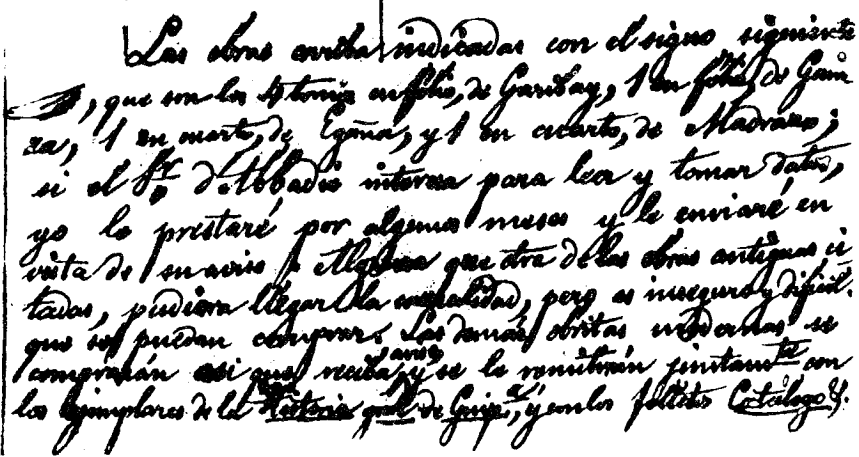 Las obras arriba indicadas con el signo siguiente
, que son los 4 tomos en folio, de Garibay, 1 en folio, de Gain
za, 1 en cuarto, de Egaña, y 1 en cuarto, de Madrazo;
si el Sr. D'Abbadie interesa para leer y tomar datos,
yo le prestaré por algunos meses y le enviaré en
vista de su aviso. Alguna que otra de las obras antiguas ci
tadas, pudiera llegar la casualidad, pero es inseguro y dificil
que se puedan comprar. Las demás obritas modernas se
comprarán asi que reciba aviso y se le remitirán juntamte con
los ejemplares de la Historia gral de Guipa, y con los folletos Catálogo &.